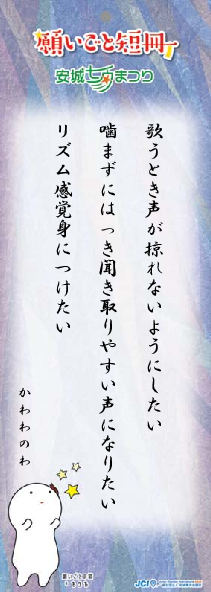 願いごと短冊
安城七夕まつり
歌うとき声が掠れないようにしたい
噛まずにはっき聞き取りやすい声になりたい
リズム感覚身につけたい
かわわのわ
JCI